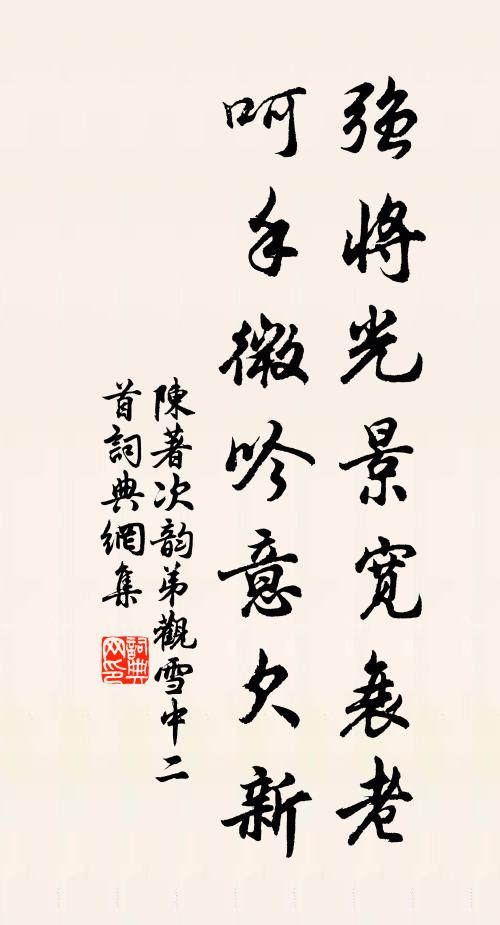 强將光景寬衰老
呵手微吟意欠新
陳著次韵弟觀雪中二
首詞典網集
詞典
网印